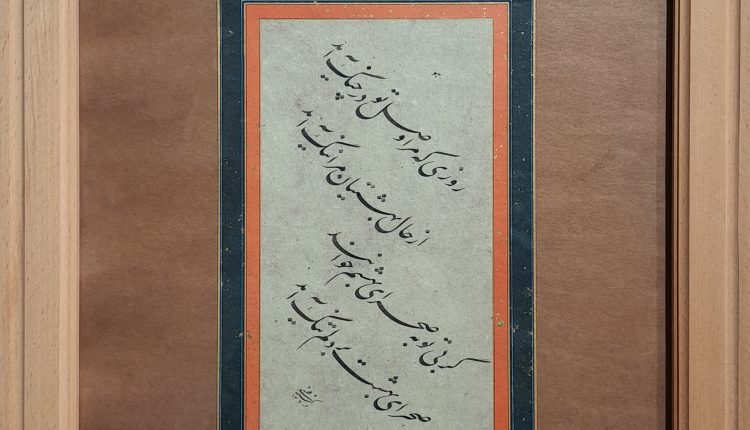 روزی که مرا وصل تو در چنگ آید
از حال بهشتیان مرا ننگ آید
گر بی تو به صحرای بهشتم خوانند
صحرای بهشت بر دلم تنگ آید